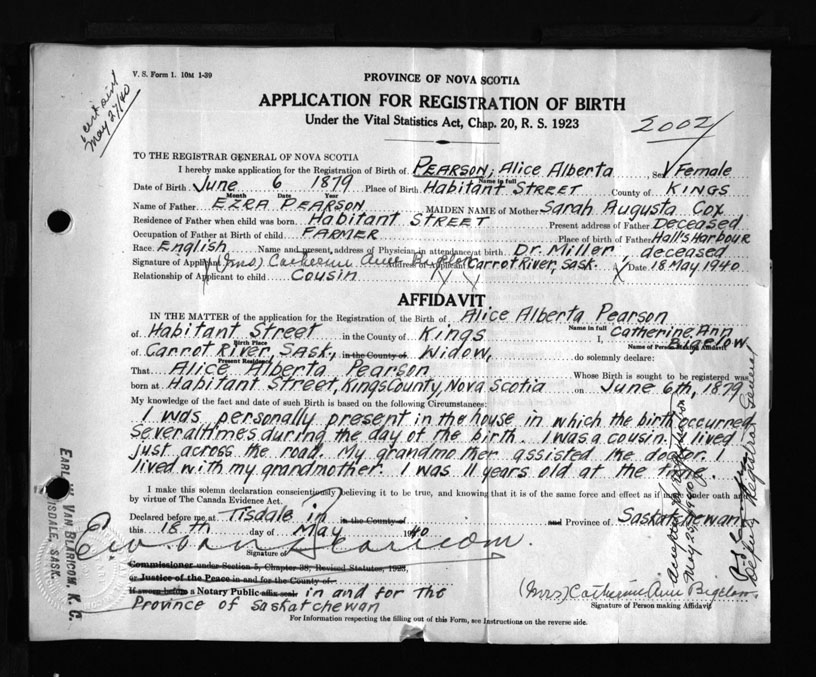 V. S. Form 1. 10M 1-39
PROVINCE OF NOVA SCOTIA
APPLICATION FOR REGISTRATION OF BIRTH
Under the Vital Statistics Act, Chap. 20, R. S. 1923
May 27/40
2002
TO THE REGISTRAR GENERAL OF NOVA SCOTIA
I hereby make application for the Registration of Birth of PEARSON, Alice Alberta Sex Female
Name in full
Date of Birth June 6 1879 Place of Birth Habitant STREET County of KINGS
Month Date Year
Name of Father EZRA PEARSON MAIDEN NAME of Mother Sarah Augusta Cox
Residence of Father when child was born Habitant STREET Present address of Father Deceased
Occupation of Father at Birth of child FARMER Place of birth of Father Hall's Harbour
Race English Name and present address of Physician in attendance at birth Dr. Miller, deceased
Signature of Applicant (Mrs) Catherine Ann Bigelow Address of Applicant Carrot River, Sask. Date 18 May 1940
Relationship of Applicant to child Cousin
AFFIDAVIT
IN THE MATTER of the application for the Registration of the Birth of Alice Alberta Pearson
Name in full
of Habitant Street in the County of Kings I, Catherine Ann Bigelow
Birth Place Name of Person Making Affidavit
of Carrot River, Sask., in the County of Widow, do solemnly declare:
Present Residence
That Alice Alberta Pearson Whose Birth is sought to be registered was
born at Habitant Street, Kings County, Nova Scotia on June 6th, 1879
My knowledge of the fact and date of such Birth is based on the following Circumstances:
I was personally present in the house in which the birth occurred
several times during the day of the birth. I was a cousin. I lived
just across the road. My grandmother assisted the doctor. I
lived with my grandmother. I was 11 years old at the time.
I make this solemn declaration conscientiously believing it to be true, and knowing that it is of the same force and effect as if made under oath and
by virtue of The Canada Evidence Act.
Declared before me at Tisdale in in the County of and Province of Saskatchewan
this 18th day of May 1940
Signature of
Commissioner under Section 5, Chapter 38, Revised Statutes, 1923,
or Justice of the Peace in and for the County of
If sworn before a Notary Public affix seal in and for the
Province of Saskatchewan
(Mrs) Catherine Ann Bigelow
Signature of Person making Affidavit
For Information respecting the filling out of this Form, see Instructions on the reverse side.
EARL W. VAN BLARICOM, K. C.
TISDALE, SASK.
May 28, 1940
Deputy Registrar General